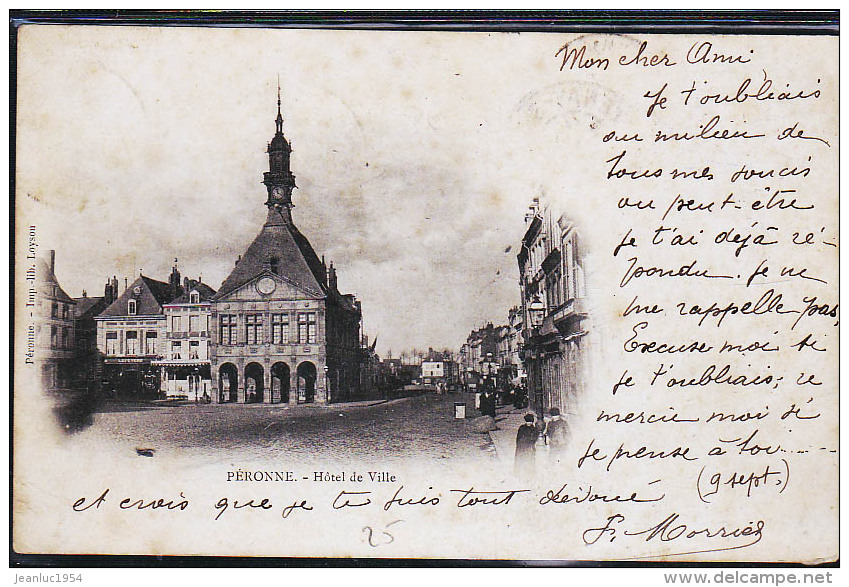 Mon cher Ami
Je t'oubliais
au milieu de
tous mes soucis
ou peut-être
je t'ai déjà ré-
pondu. Je ne
me rappelle pas,
Excuse moi si
je t'oubliais; re
mercie moi si
je pense à toi.....
(9 sept.)
et crois que je te suis tout dévoué
25
Péronne. - Imp.-lib. Loyson
PÉRONNE. - Hôtel de Ville
jeanluc1954
www.delcampe.net